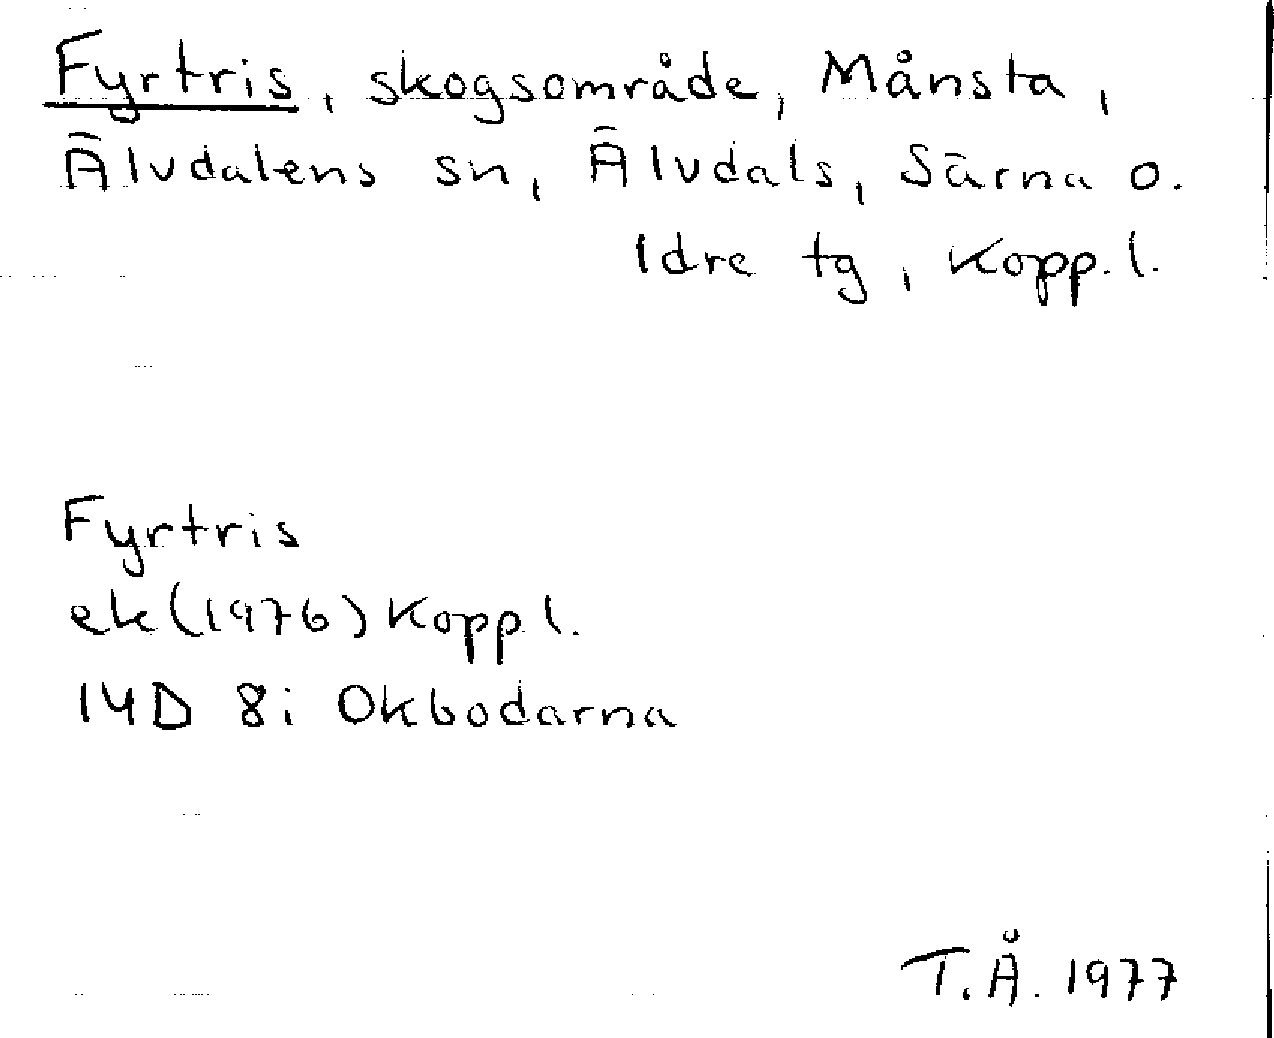 Fyrtris, skogsområde, Månsta,
Älvdalens sn, Älvdals, Särna o.
Idre tg, Kopp. l.
Fyrtris
ek (1976) Kopp l.
14D 8i Okbodarna
T.Å. 1977